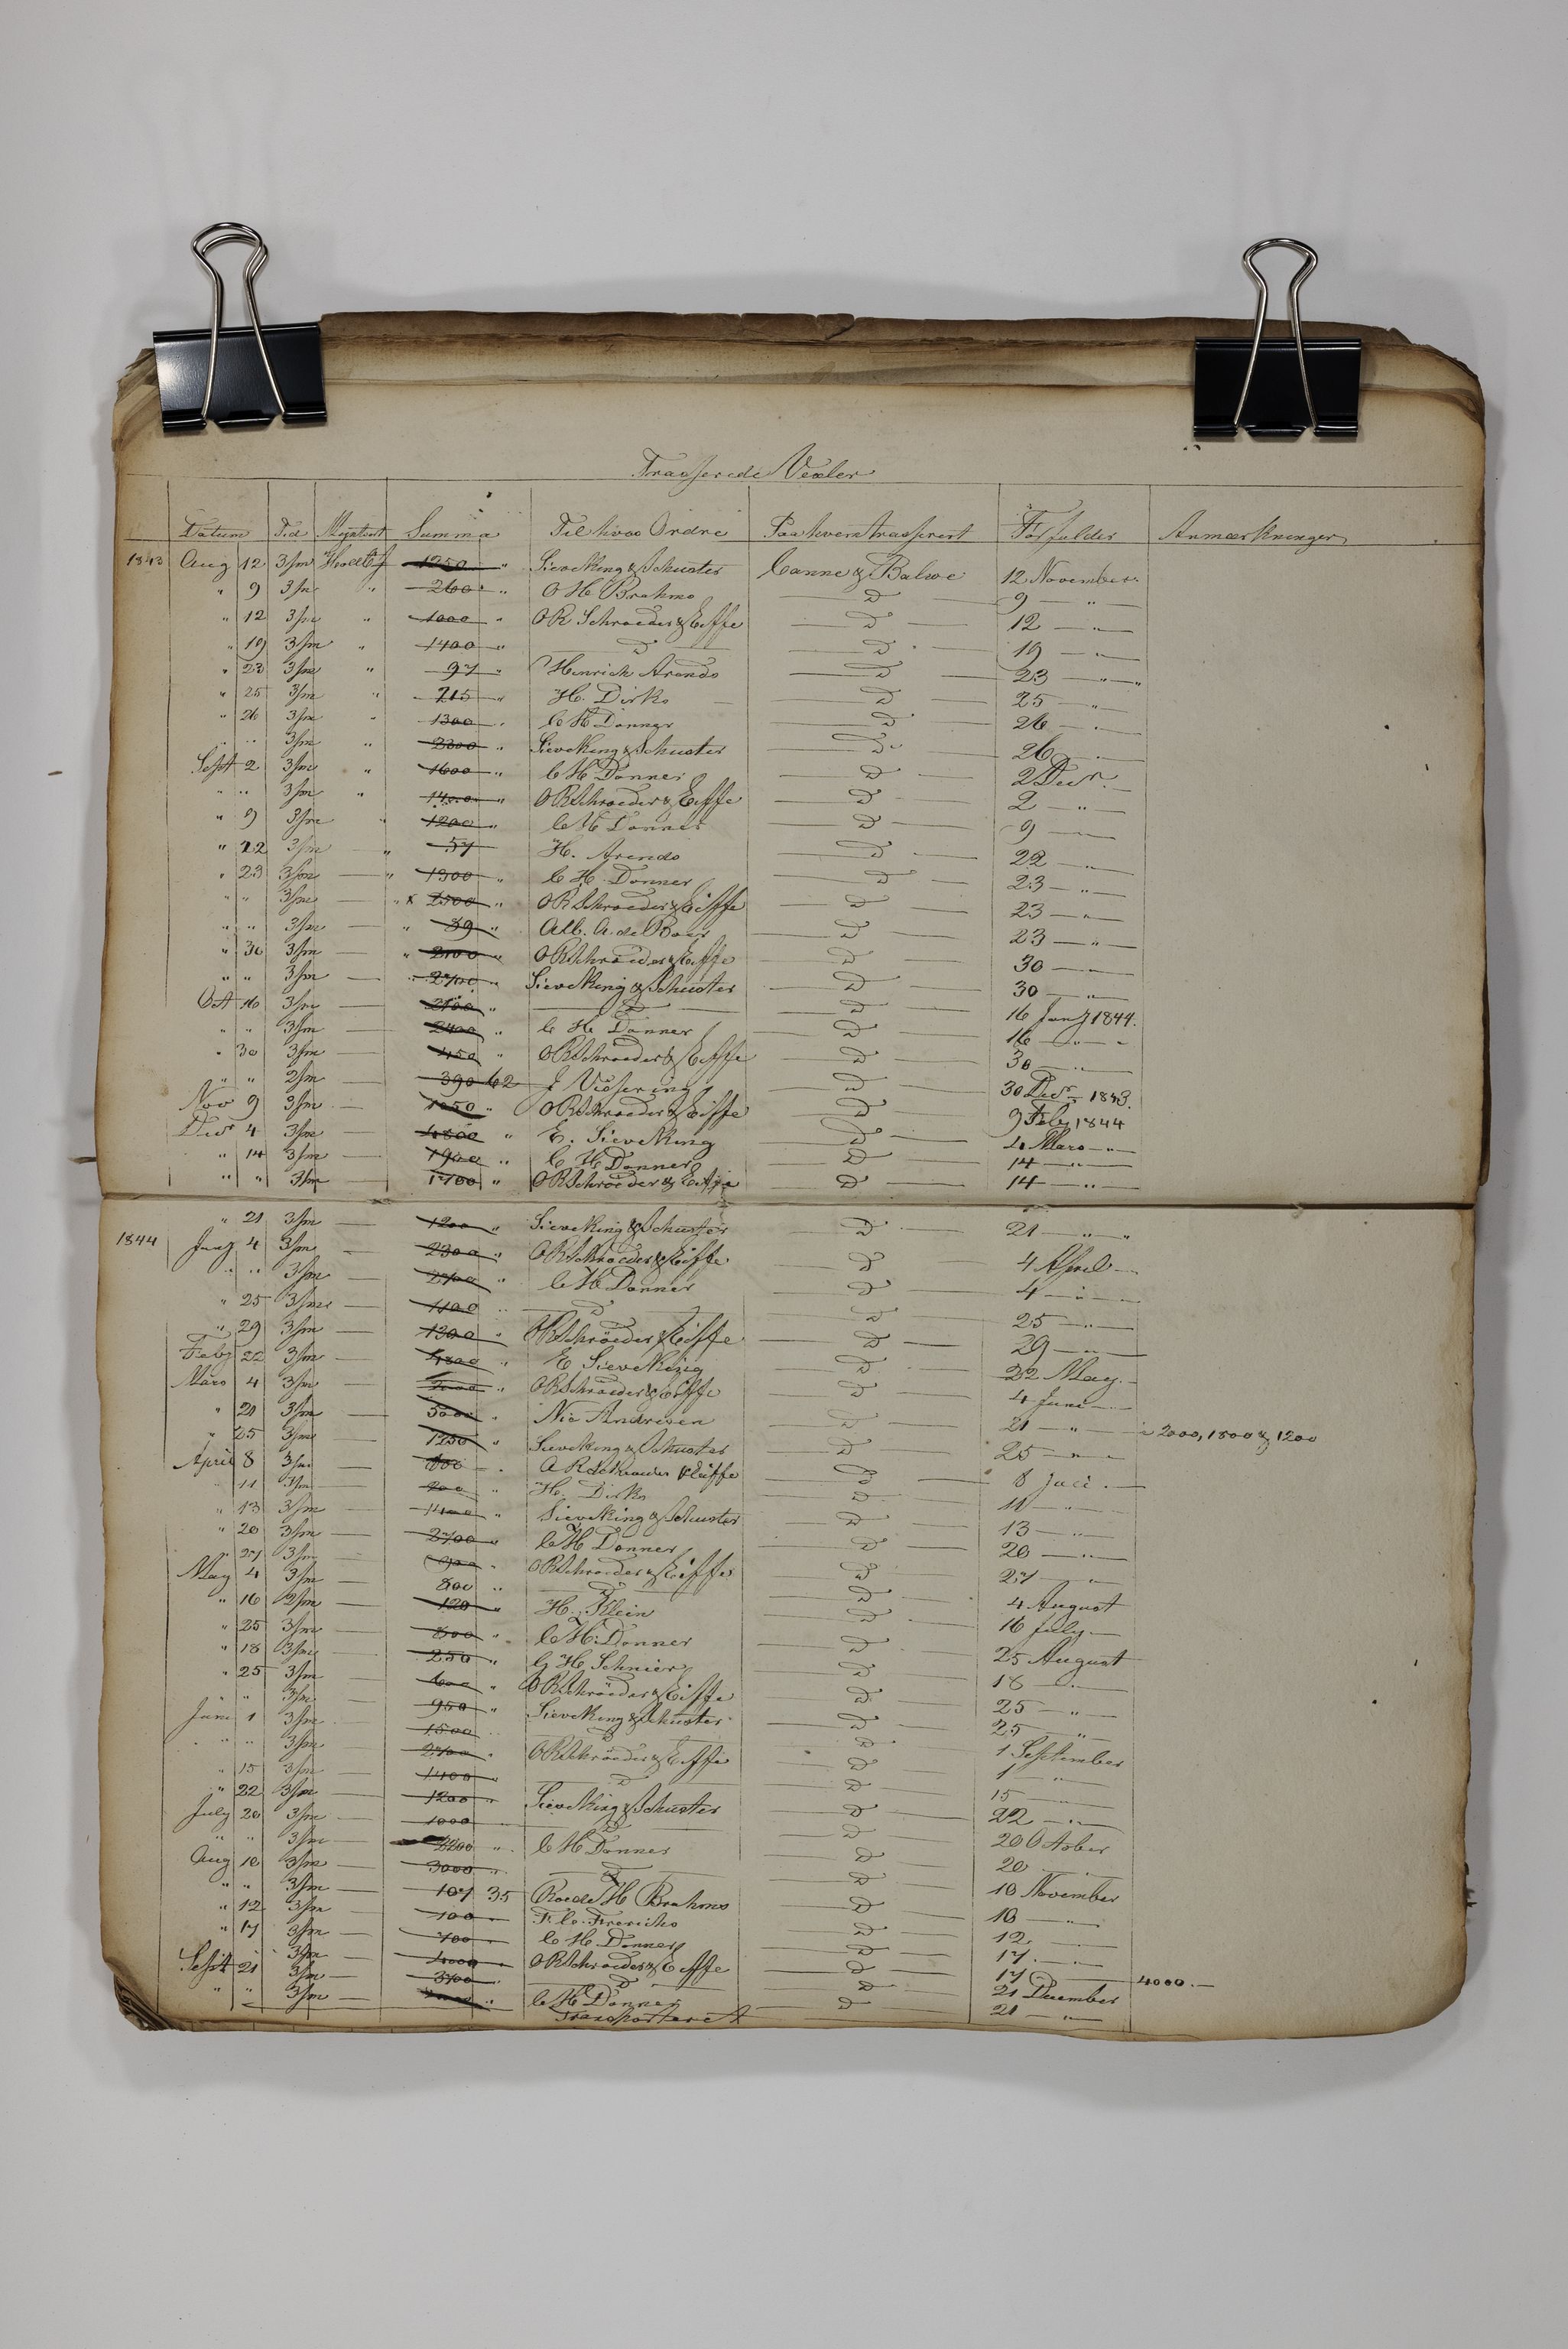 Trasserede Vexler
Datum Tid Myntsort Summa Til hvos Ordre Paa hvem trasserit Forfalder Anmærkninger
1843 Aug 12 3/m 1250 " Sieveking & Schuster Canne & Balwe 12 November
" 9 3/m " 2600 " O H Brahms D 9 "
" 12 3/m " 1000 " OR Schroeder & Eiffe D 12 "
" 19 3/m " 1400 " D D 19 "
" 23 3/m " 97 " Henrich Arends D 23 "
" 25 3/m " 215 " H. Dirks D 25 "
" 26 3/m " 1300 " C H Donner D 26 "
" " 3/m " 2300 " Sieveking & Schuster D 26 "
Sept 2 3/m " 1600 " C H Donner D 2 Decr.
" " 3/m " 1400 " OR Schroeder & Eiffe D 2 "
" 9 3/m " 1200 " C H Donner D 9
" 22 3/m " 57 H. Arends D 22 "
" 23 3/m " 1900 " C H Donner D 23 "
" " 3/m " x 2500 " OR Schroeder & Eiffe D 23 "
" " 3/m " 89 " Alb. A. de Boer D 23 "
" 30 3/m " 2100 " OR Schroeder & Eiffe D 30
" " 3/m " 2700 " Sieveking & Schuster D 30 "
Oct 16 3/m 2100 " D D 16 Janj 1844.
" " 3/m 2400 " C H Donner D 16 "
" 30 3/m 450 " OR Schroeder & Eiffe D 30 "
" " 2/m 390 62 J Vissering D 30 Decr 1843.
Nov 9 3/m 1050 " OR Schroeder & Eiffe D 9 Feby 1844
Decr 4 3/m 4800 " E. Sieveking D 4 Mars "
" 14 3/m 1900 " C H Donner D 14 "
" " 3/m 1700 " OR Schroeder & Eiffe D 14 "
" 21 3/m 1200 " Sieveking & Schuster D 21 "
1844 Janj 4 3/m 2300 " OR Schroeder & Eiffe D 4 April
" " 3/m 2700 " C H Donner D 4 "
" 25 3/m 1100 " D D 25 "
" 29 3/m 1300 " OR Schröeder & Eiffe D 29 "
Feby 22 3/m 4800 " E Sieveking D 22 May
Mars 4 3/m 2000 " OR Schröeder & Eiffe D 4 Juni
" 21 3/m 5000 " Nic Andresen D 21 " 2000, 1800 & 1200
" 25 3/m 1250 " Sieveking & Schuster D 25 "
April 8 3/m A R Schroeder & Eiffe D 8 Juli
" 11 3/m 200 " H. Dirks D 11 "
" 13 3/m 1400 " Sieveking & Schuster D 13 "
" 20 3/m 2700 " C H Donner D 20 "
" 27 3/m 900 " OR Schroeder & Eiffe D 27 "
May 4 3/m 800 " D D 4 August
" 16 2/m 120 " H. Klein D 16 July
" 25 3/m 800 " C H Donner D 25 August
" 18 3/m 250 " G H Schnier D 18 "
" 25 3/m 600 " OR Schröeder & Eiffe D 25 "
" " 3/m 950 " Sieveking & Schuster D 25 "
Juni 1 3/m 1500 " D D 1 September
" " 3/m 2700 " OR Schröeder & Eiffe D 1 "
" 15 3/m 1400 " D D 15 "
" 22 3/m 1200 " Sieveking & Schuster D 22 "
July 20 3/m 1000 " D D 20 October
" " 3/m 2200 " C H Donner D 20 "
Aug 10 3/m 3000 " D D 10 November
" " 3/m 107 35 Roede H Brahms D 10 "
" 12 3/m 100 F C. Frerichs D 12 "
" 17 3/m 700 C H Donner D 17 "
3/m 4000 OR Schroeder & Eiffe D 17 4000.—
Sept 21 3/m 3700 D D 21 December
" " 3/m C H Donner D 21 "
Transporteret